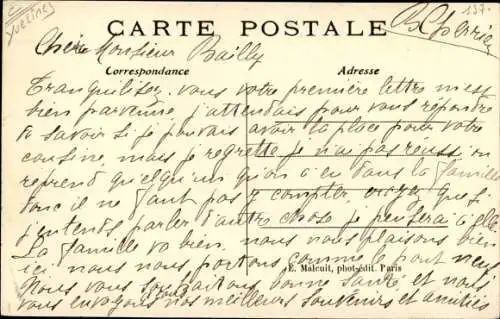 Yvelines
CARTE POSTALE
137.
Chère Monsieur Bailly
Correspondance
Adresse
Tranquilisez vous votre première lettre m'est
bien parvenue j'attendais pour vous répondre
à savoir si je pouvais avoir la place pour votre
cousine, mais je regrette je n'ai pas reussi on
reprend quelqu'un qu'on a eu dans la famille
donc il ne faut pas y compter, que si
j'entends parler d'autre chose je penserai à elle
La famille va bien, nous nous plaisons bien
ici nous nous portons comme le pont neuf
E. Malcuit, phot-édit. Paris
Nous vous souhaitons bonne santé, et nous
vous envoyons tous nos meilleurs souvenirs et amitiés